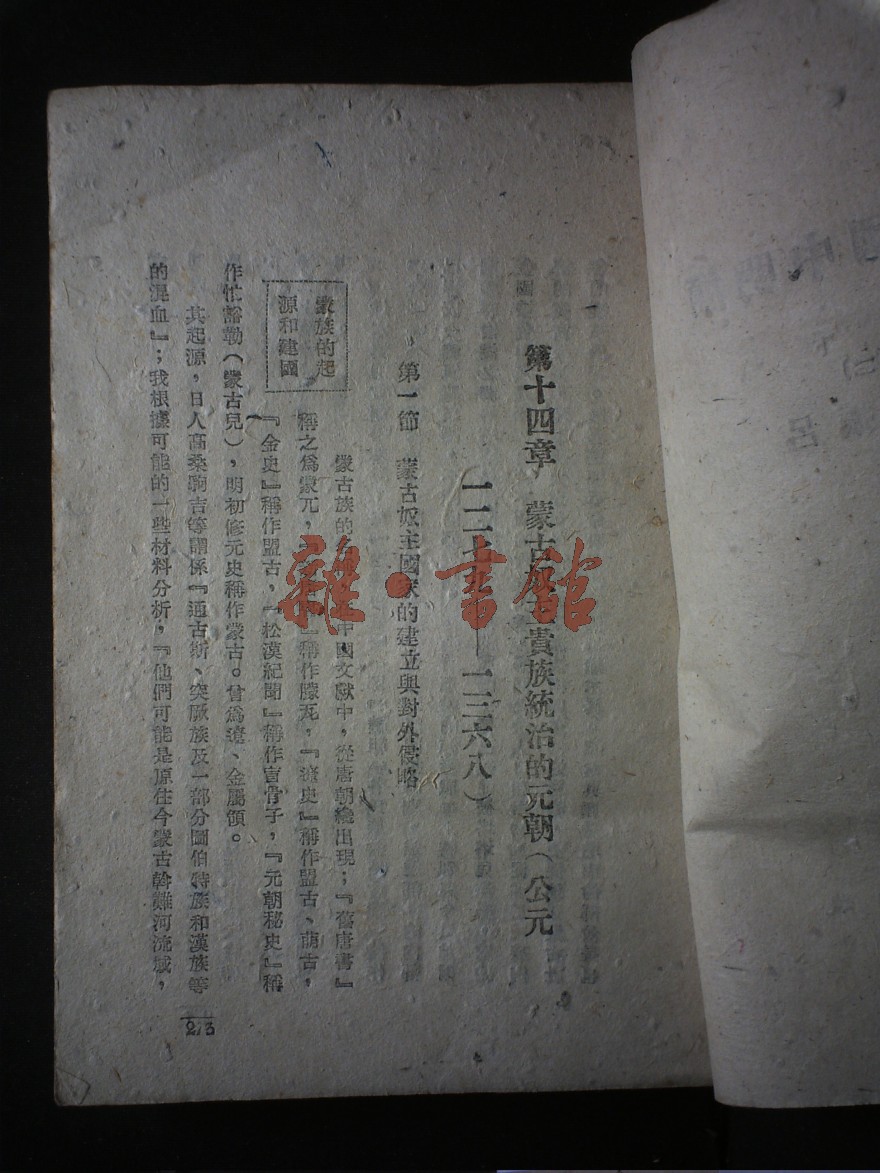 第十四章 蒙古奴主貴族統治的元朝（公元
一二七 — 一三六八）
第一節 蒙古奴主國家的建立與對外侵略
蒙族的起
源和建國
蒙古族的 中國文獻中，從唐朝纔出現；『舊唐書』
稱之爲蒙兀， 』稱作朦瓦，『遼史』稱作盟古、萌古，
『金史』稱作盟古，『松漠紀聞』稱作盲骨子，『元朝秘史』稱
作忙豁勒（蒙古兒），明初修元史稱作蒙古。曾爲遼、金屬領。
其起源，日人高桑駒吉等謂係『通古斯、突厥族及一部分圖伯特族和漢族等
的混血』；我根據可能的一些材料分析，『他們可能是原住今蒙古斡難河流域，
213
雜·書館